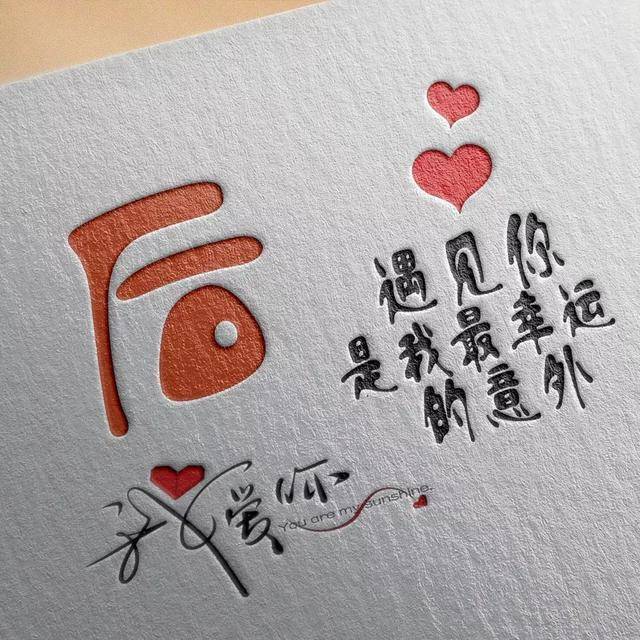 后
遇见你
是我最幸运
的意外
我爱你
You are my sunshine.